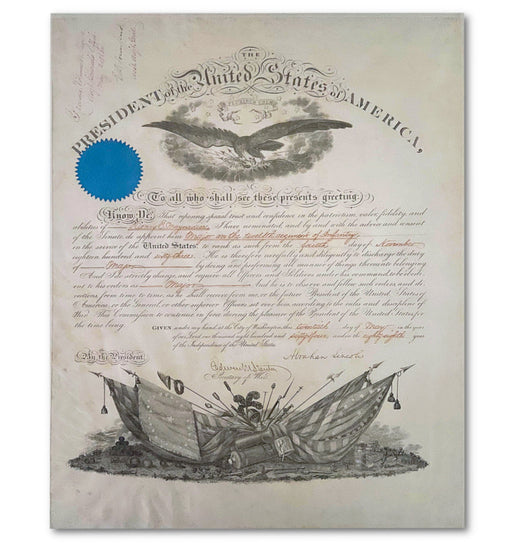 THE
PRESIDENT of the United States of AMERICA,
To all who shall see these presents greeting:
Know Ye, That reposing special trust and confidence in the patriotism, valor, fidelity, and
abilities of I have nominated, and by and with the advice and consent
of the Senate, do appoint him Major
in the service of the United States: to rank as such from the day of November
eighteen hundred and sixty three. He is therefore carefully and diligently to discharge the duty
of Major by doing and performing all manner of things thereunto belonging.
And I do strictly charge, and require all Officers and Soldiers under his command to be obedi-
ent to his orders as Major And he is to observe and follow such orders, and di-
rections from time to time, as he shall receive from me, or the future President of the United States of
America, or the General, or other superior Officers set over him, according to the rules and discipline of
War. This Commission to continue in force during the pleasure of the President of the United States, for
the time being.
GIVEN under my hand at the City of Washington, this twentieth day of May in the year
of our Lord one thousand eight hundred and sixty four, and in the eighty eighth year
of the Independence of the United States.
By the President,
Abraham Lincoln
Edwin M Stanton
Secretary of War.